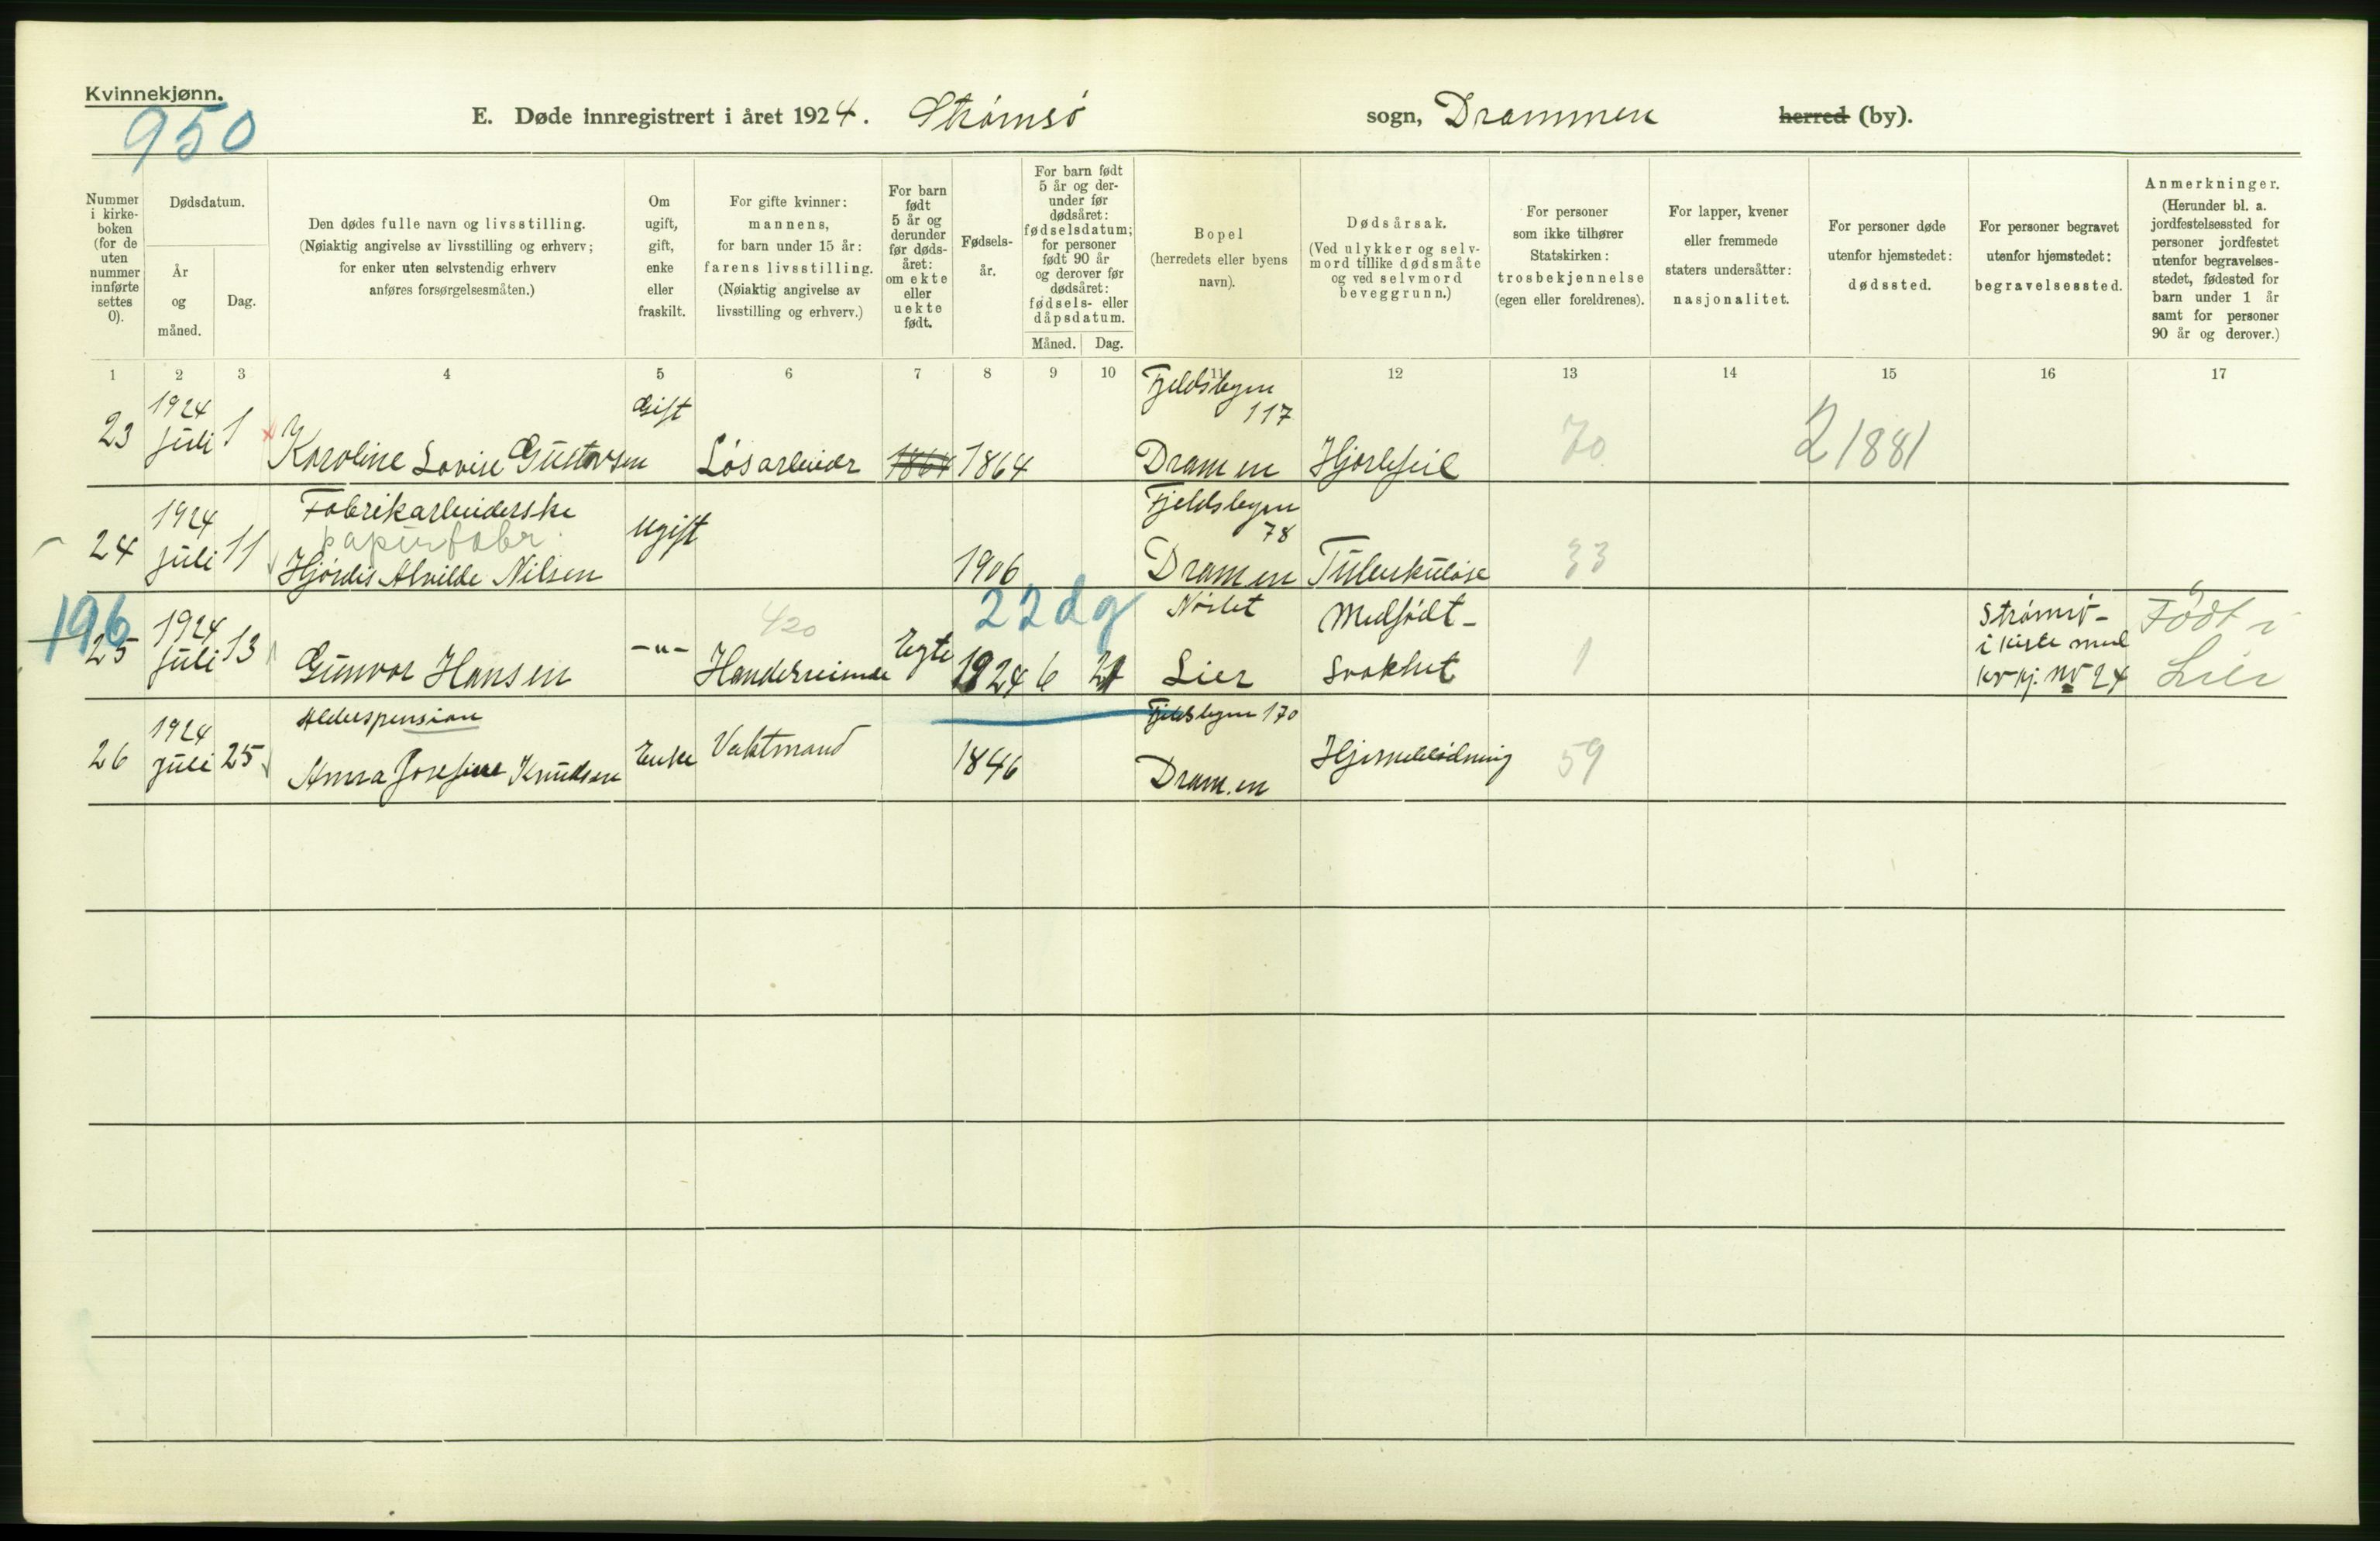 Kvinnekjønn.
950
E. Døde innregistrert i året 1924. Strømsø sogn, Drammen herred (by).
Nummer i kirke-boken (for de uten nummer innførte settes 0).
Dødsdatum.
År og måned.
Dag.
Den dødes fulle navn og livsstilling. (Nøiaktig angivelse av livsstilling og erhverv; for enker uten selvstendig erhverv anføres forsørgelsesmåten.)
Om ugift, gift, enke eller fraskilt.
For gifte kvinner: mannens, for barn under 15 år: farens livsstilling. (Nøiaktig angivelse av livsstilling og erhverv.)
For barn født 5 år og derunder før døds-året: om ekte eller uekte født.
Fødsels-år.
For barn født 5 år og der-under før dødsåret: fødselsdatum; for personer født 90 år og derover før dødsåret: fødsels- eller dåpsdatum.
Måned. Dag.
Bopel (herredets eller byens navn).
Dødsårsak. (Ved ulykker og selv-mord tillike dødsmåte og ved selvmord beveggrunn.)
For personer som ikke tilhører Statskirken: trosbekjennelse (egen eller foreldrenes).
For lapper, kvener eller fremmede staters undersåtter: nasjonalitet.
For personer døde utenfor hjemstedet: dødssted.
For personer begravet utenfor hjemstedet: begravelsessted.
Anmerkninger. (Herunder bl. a. jordfestelsessted for personer jordfestet utenfor begravelses-stedet, fødested for barn under 1 år samt for personer 90 år og derover.)
1 2 3 4 5 6 7 8 9 10 11 12 13 14 15 16 17
23 1924 juli 1 Karoline Lovise Gustavsen Gift Løsarbeider 1864 1864 Fjeldsbyen 117 Drammen Hjertefeil 70 2 1881
24 1924 juli 11 Fabrikarbeiderske papirfabr. Hjørdis Alvilde Nilsen ugift 1906 Fjeldsbyen 78 Drammen Tuberkulose 33
196
25 1924 juli 13 Gunvor Hansen -"- 420 Handelsreisende Egte 22 dg 1924 6 21 Nøstet Lier Medfødt- svakhet 1 Strømsø- i kiste med kv kj. nr 24 Født i Lier
26 1924 juli 25 Alderspension Anna Josefine Knudsen Enke Vaktmand 1846 Fjeldsbyen 170 Drammen Hjerneblødning 59